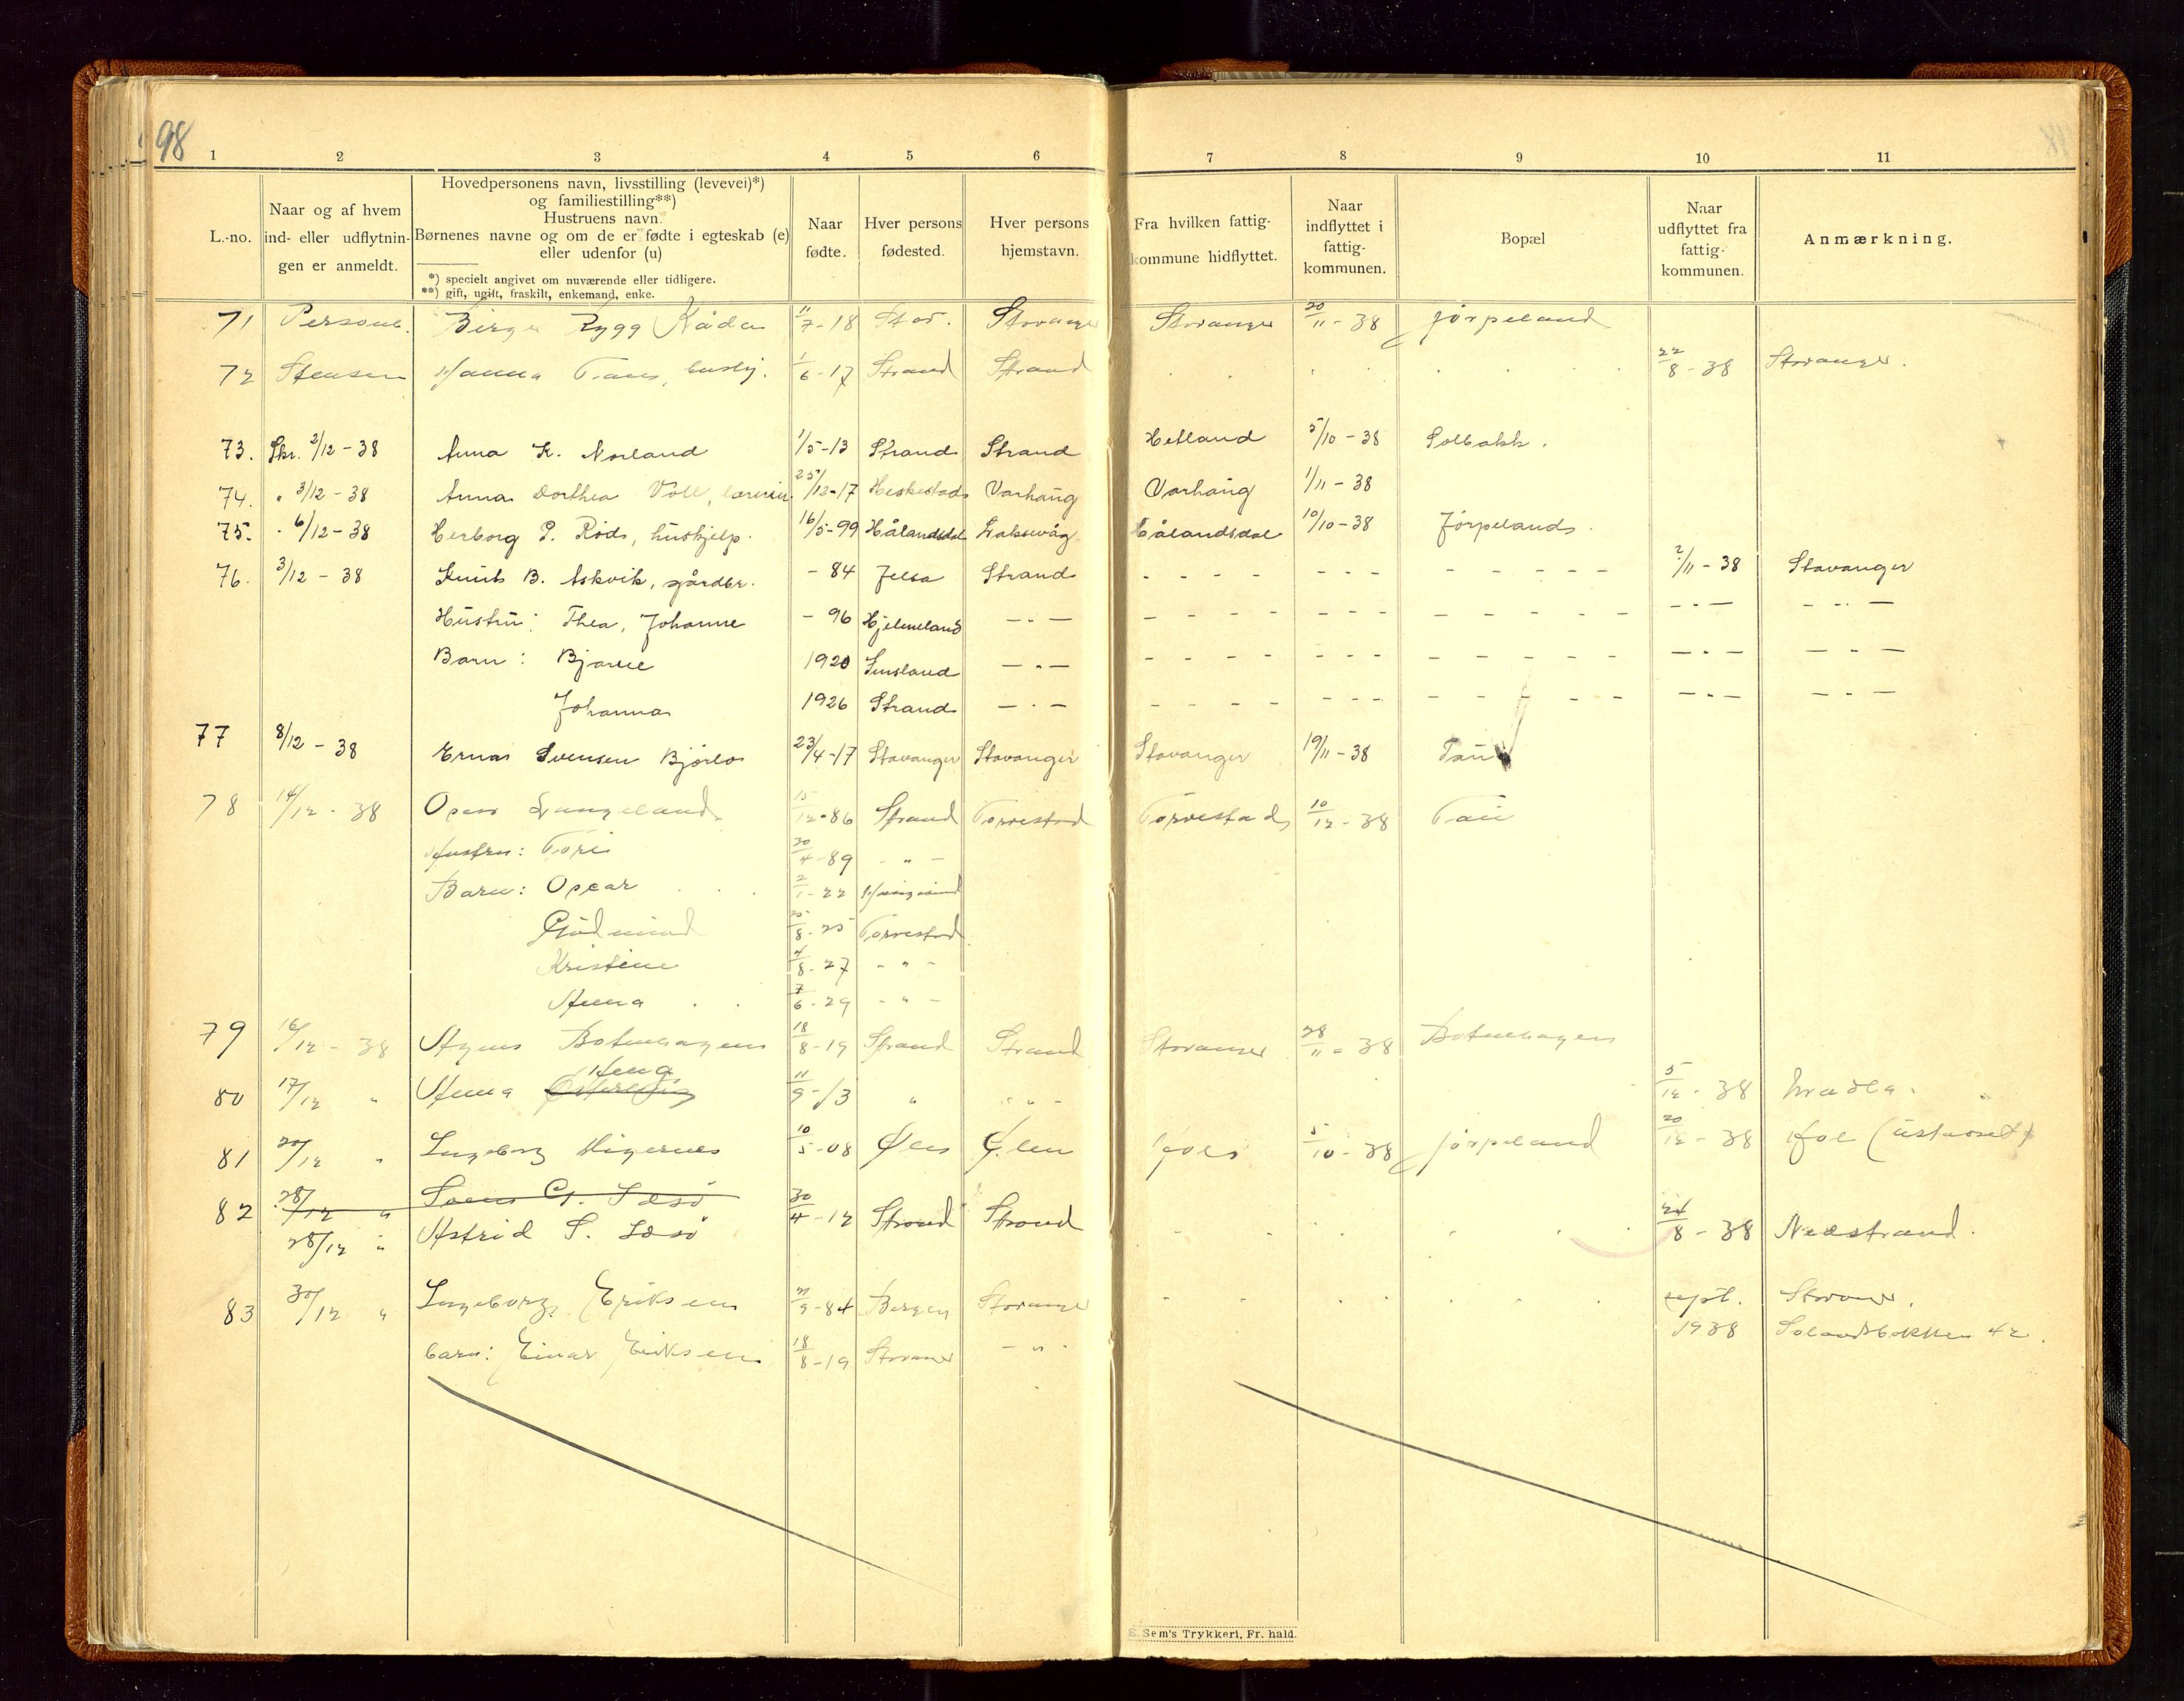 98
1 2 3 4 5 6 7 8 9 10 11
L.-no.
Naar og af hvem ind- eller udflytnin- gen er anmeldt.
Hovedpersonens navn, livsstilling (levevei)*)
og familiestilling**)
Hustruens navn.
Børnenes navne og om de er fødte i egteskab (e)
eller udenfor (u)
*) specielt angivet om nuværende eller tidligere.
**) gift, ugift, fraskilt, enkemand, enke.
Naar fødte.
Hver persons fødested.
Hver persons hjemstavn.
Fra hvilken fattig- kommune hidflyttet.
Naar indflyttet i fattig- kommunen.
Bopæl
Naar udflyttet fra fattig- kommunen.
Anmærkning.
71 Birger Rygg Kåda 11/7-18 Stav. Stavanger Stavanger 20/11-38 Jørpeland
72 Hanna 1/6-17 Strand Strand 22/8-38 Stavanger.
73. Skr. 2/12-38 Anna K. Norland 1/5-13 Strand Strand Hetland 5/10-38 Solbakk.
74. " 3/12-38 Anna Dorthea Voll, 25/12-17 Heskestad Varhaug Varhaug 1/11-38
75. " 6/12-38 Herborg P. Røds, hushjelp. 16/5-99 Hålandsdal Laksevåg Hålandsdal 10/10-38 Jørpeland.
76. 3/12-38 Knut B. Askvik, gårdbr. -84 Jelsa Strand - - - - - - - - - - - - - 2/11-38 Stavanger
Hustru: Thea, Johanne -96 Hjelmeland — " — - - - - - - - - - - - - - — " — — " —
Barn: Bjarne 1920 — " — - - - - - - - - - - - - - — " — — " —
Johanna 1926 Strand — " — - - - - - - - - - - - - - — " — — " —
77 8/12-38 Erna Svensen Bjørlo 23/4-17 Stavanger Stavanger Stavanger 19/11-38 Tau
78 14/12-38 Langeland 15/12-86 Strand Torvestad Torvestad 10/12-38 Tau
Hustru: Tori 30/4-89 - " -
Barn: Oscar 2/1-22
Gudmund 25/8-25 Torvestad
Kristine 4/8-27 - " -
Anna 7/6-29 - " -
79 16/12-38 Agnes Botnehagen 18/8-19 Strand Strand Stavanger 28/11-38 Botnehagen
80 17/12 " Anna 11/9-13 " " 5/12-38
81 20/12 " Ingeborg 10/5-08 Ølen Ølen 5/10-38 Jørpeland 20/12-38
82 28/12 "
28/12 " Astrid S. 30/4-12 Strand Strand 24/8-38 Nedstrand.
83 30/12 " Ingeborg Eriksen 9-84 Bergen Stavanger sept. 1938 Stavanger.
barn: Einar Eriksen 18/8-19 Stavanger - " -
E. Sem's Trykkeri, Fr. hald.